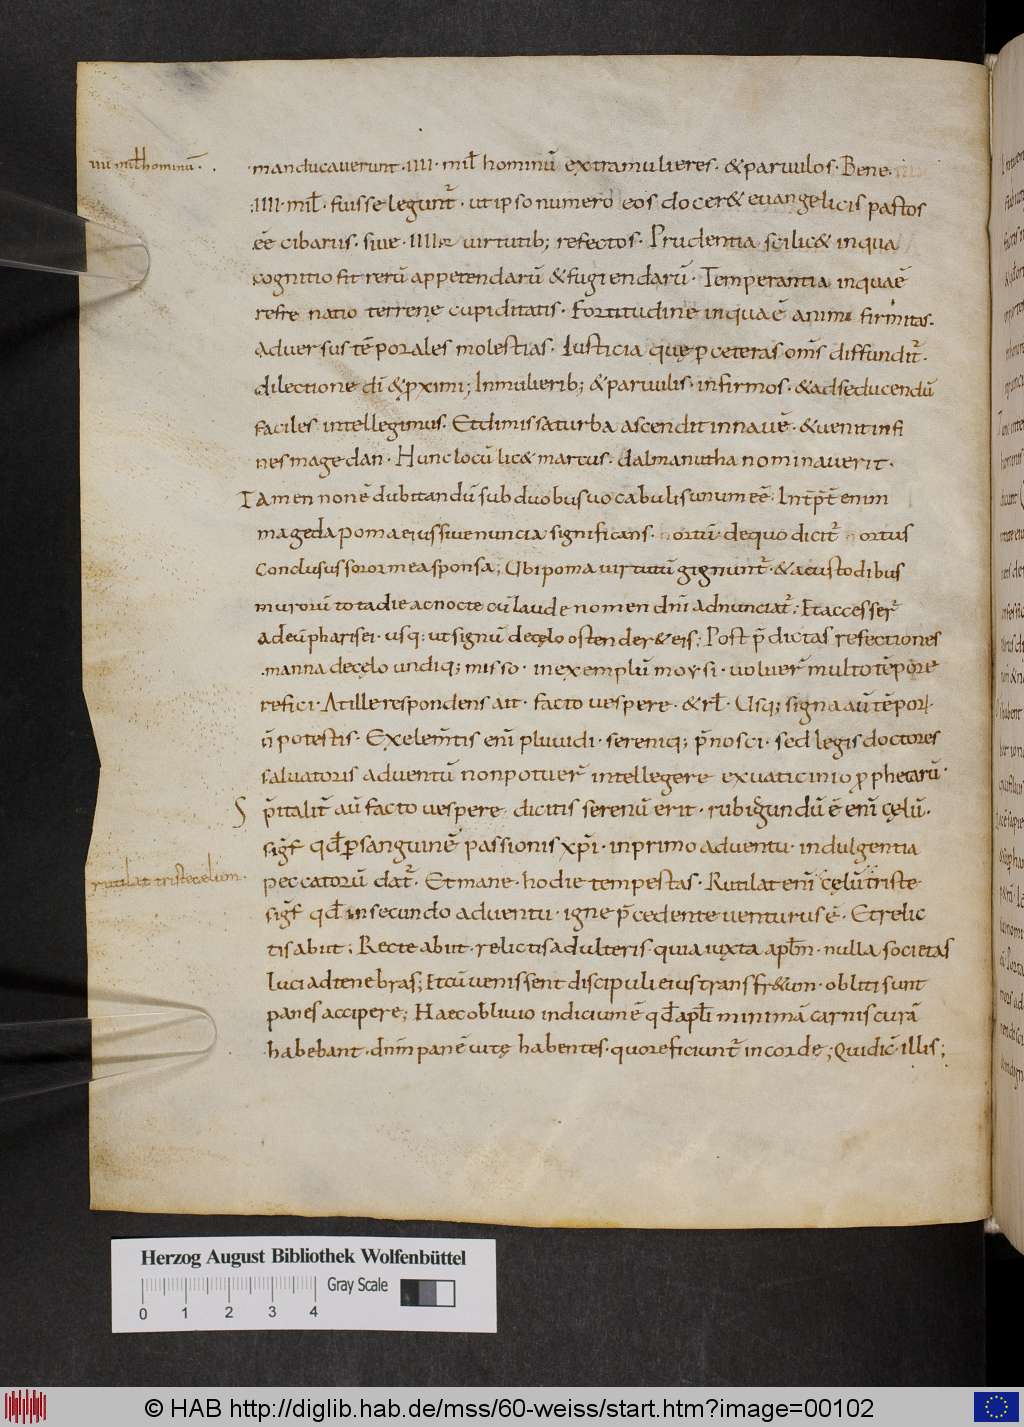 uii milł hominū.
manducauerunt · iiii · mił hominū extra mulieres · & paruulos · Bene ·
:iiii · mił · fuisse legunt̄ · ut ipso numero eos docer& euangelicis pastos
ēē cibariis · siue · iiii or uirtutib; refectos · Prudentia scilic& in qua
cognitio fit rerū appetendarū & fugiendarū · Temperantia in qua ē
refrenatio terrenę cupiditatis · Fortitudine in qua ē animi firmitas ·
aduersus tēporales molestias · Iusticia quę p ceteras om̄s diffundit̄ ·
dilectione dī & pximi; In mulierib; & paruulis · infirmos · & ad seducendū
faciles intellegimus · Et dimissa turba ascendit in nauē · & uenit in fi
nes magedan · Hunc locū lic& marcus · dalmanutha nominauerit ·
Iamen non ē dubitandū sub duobus uocabulis unum eē · Int̄p̄t̄ enim
mageda poma eius siue nuncia significans · ortū · de quo dicit̄ ortus
conclusus soror mea sponsa; Ubi poma uirtutū gignunt̄ · & a custodibus
murorū tota die ac nocte cū laude nomen dn̄i adnunciat̄; Et accesser̄
ad eū pharisei · usq; ut signū de cęlo ostender& eis; Post p̄dictas refectiones
manna de cęlo undiq; misso · in exemplū moysi · uoluer̄ multo tēpore
refici · At ille respondens ait · facto uespere · & rł · Usq; signa aū tēpor ·
n̄ potestis · Ex elem̄tis enī pluuidi · sereniq; p̄nosci · sed legis doctores
saluatoris aduentū non potuer̄ intellegere ex uaticinio pphetarū ·
S p̄italit̄ aū facto uespere dicitis serenū erit · rubigundū ē enī cęlū ·
sigf̄ qđ p sanguinē passionis xp̄i · in primo aduentu · indulgentia
peccatorū dat̄ · Et mane · hodie tempestas · Rutilat enī cęlū triste
rutilat triste celum ·
sigf̄ qđ in secundo aduentu · igne p̄cedente uenturus ē · Et relic
tis abiit; Recte abiit · relictis adulteris · quia iuxta apłm · nulla societas
luci ad tenebras; Et cū uenissent discipuli eius trans fr&um · obliti sunt
panes accipere; Haec obliuio indicium ē qđ apłi minimā carnis curā
habebant · dn̄m panē uitę habentes · quo reficiunt̄ in corde; Qui dic̄ · illis;
Herzog August Bibliothek Wolfenbüttel
Gray Scale
0 1 2 3 4
© HAB http://diglib.hab.de/mss/60-weiss/start.htm?image=00102